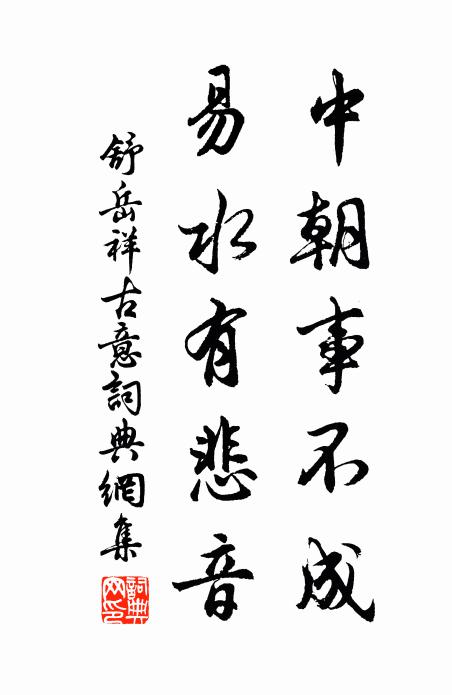 中朝事不成
易水有悲音
舒岳祥古意詞典網集
詞典网印